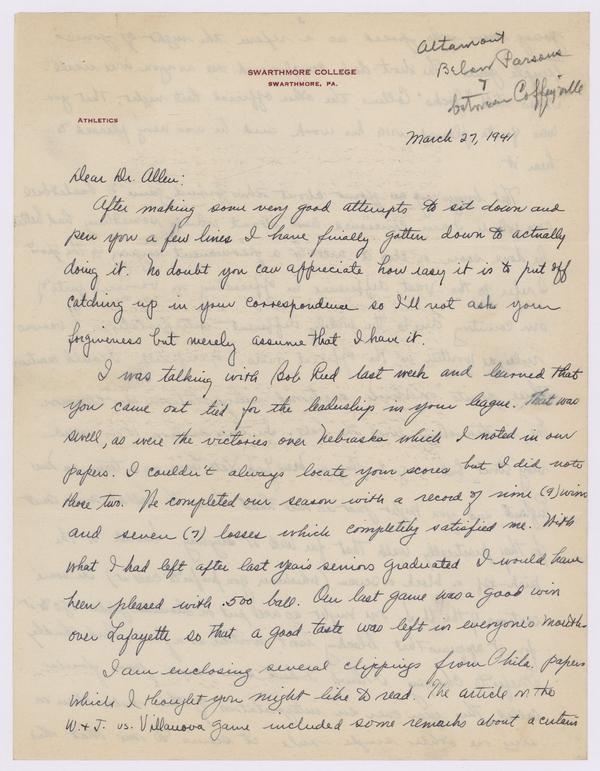 Altamont
Below Parsons
between Coffeyville
SWARTHMORE COLLEGE
SWARTHMORE, PA.
ATHLETICS
March 27, 1941
Dear Dr. Allen:
After making some very good attempts to sit down and
pen you a few lines I have finally gotten down to actually
doing it. No doubt you can appreciate how easy it is to put off
catching up in your correspondence so I'll not ask your
forgiveness but merely assume that I have it.
I was talking with Bob Reed last week and learned that
you came out tied for the leadership in your league. That was
swell, as were the victories over Nebraska which I noted in our
papers. I couldn't always locate your scores but I did note
those two. We completed our season with a record of nine (9) wins
and seven (7) losses which completely satisfied me. With
what I had left after last years seniors graduated I would have
been pleased with .500 ball. Our last game was a good win
over Lafayette so that a good taste was left in everyone's mouths.
I am enclosing several clippings from Phila. papers
which I thought you might like to read. The article on the
W. & J. vs. Villanova game included some remarks about a certain